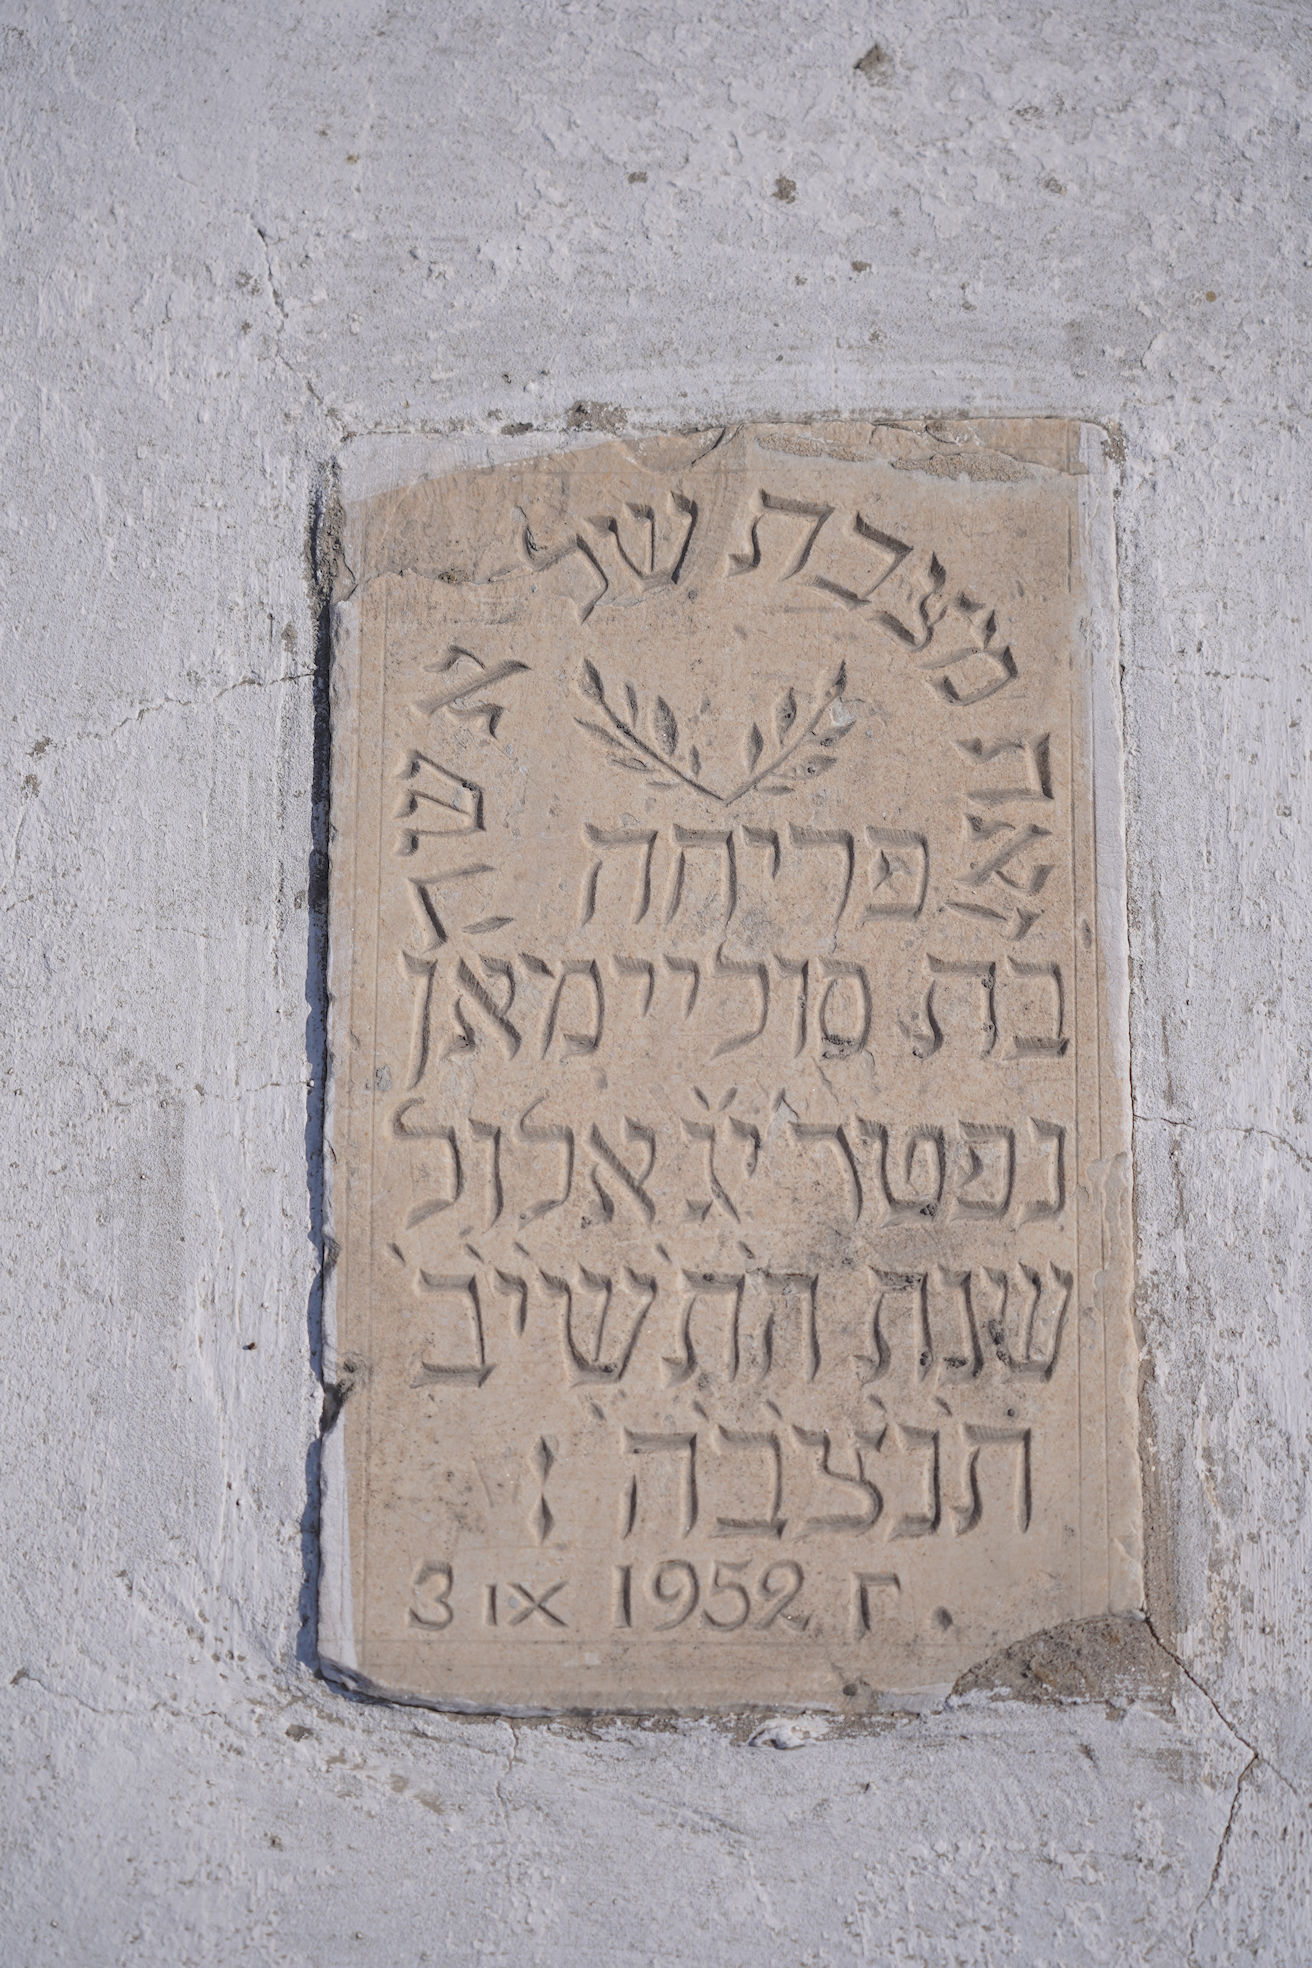 מצבת של אשה
נאו'
פריחה
בת סוליימאן
נפטר י̇ג̇ אלול
שנת ה̇ת̇ש̇י̇ב̇
ת̇נ̇צ̇ב̇ה̇ :
3 IX 1952 г.